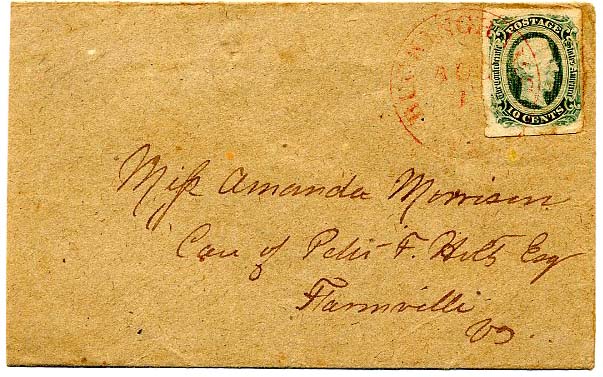 POSTAGE
The Confederate States of America
10 CENTS
AUG
1
Miss Amanda Morrison
Care of Peter F. Holt Esq
Farmville
Va.